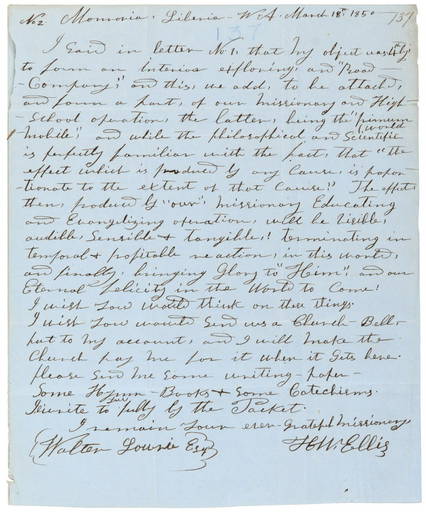 No 2 Monrovia. Liberia - W.A. March 18th. 1850 137
137
I Said in letter No 1. that my object was
to form an Interior exploring, and "Road
Company", and this, we add, to be attached,
and form a part, of our Missionary and High-
School operation, the latter, being the "primum
Mobile", and while the philosophical and Scientific World
is perfectly familiar with the fact, that "the
effect which is produced by any Cause, is propor-
tionate to the extent of that Cause". The effects
then, produced by "our", Missionary Educating
and Evangelizing operation, will be Visible,
audible, Sensible & tangible,! terminating in
temporal & profitable reaction, in this world,
and finally, bringing Glory to "Him" and our
Eternal felicity in the World to Come!
I wish you would think on these things.
I wish you would Send us a Church-Bell,
put to my account, and I will make the
Church pay me for it when it Gets here.
please Send me Some writing-paper-
Some Hymn-Books & Some Catechisms.
I write fully by the Packet.
I remain Your ever-grateful Missionary
(Walter Lowrie Esq) H W Ellis